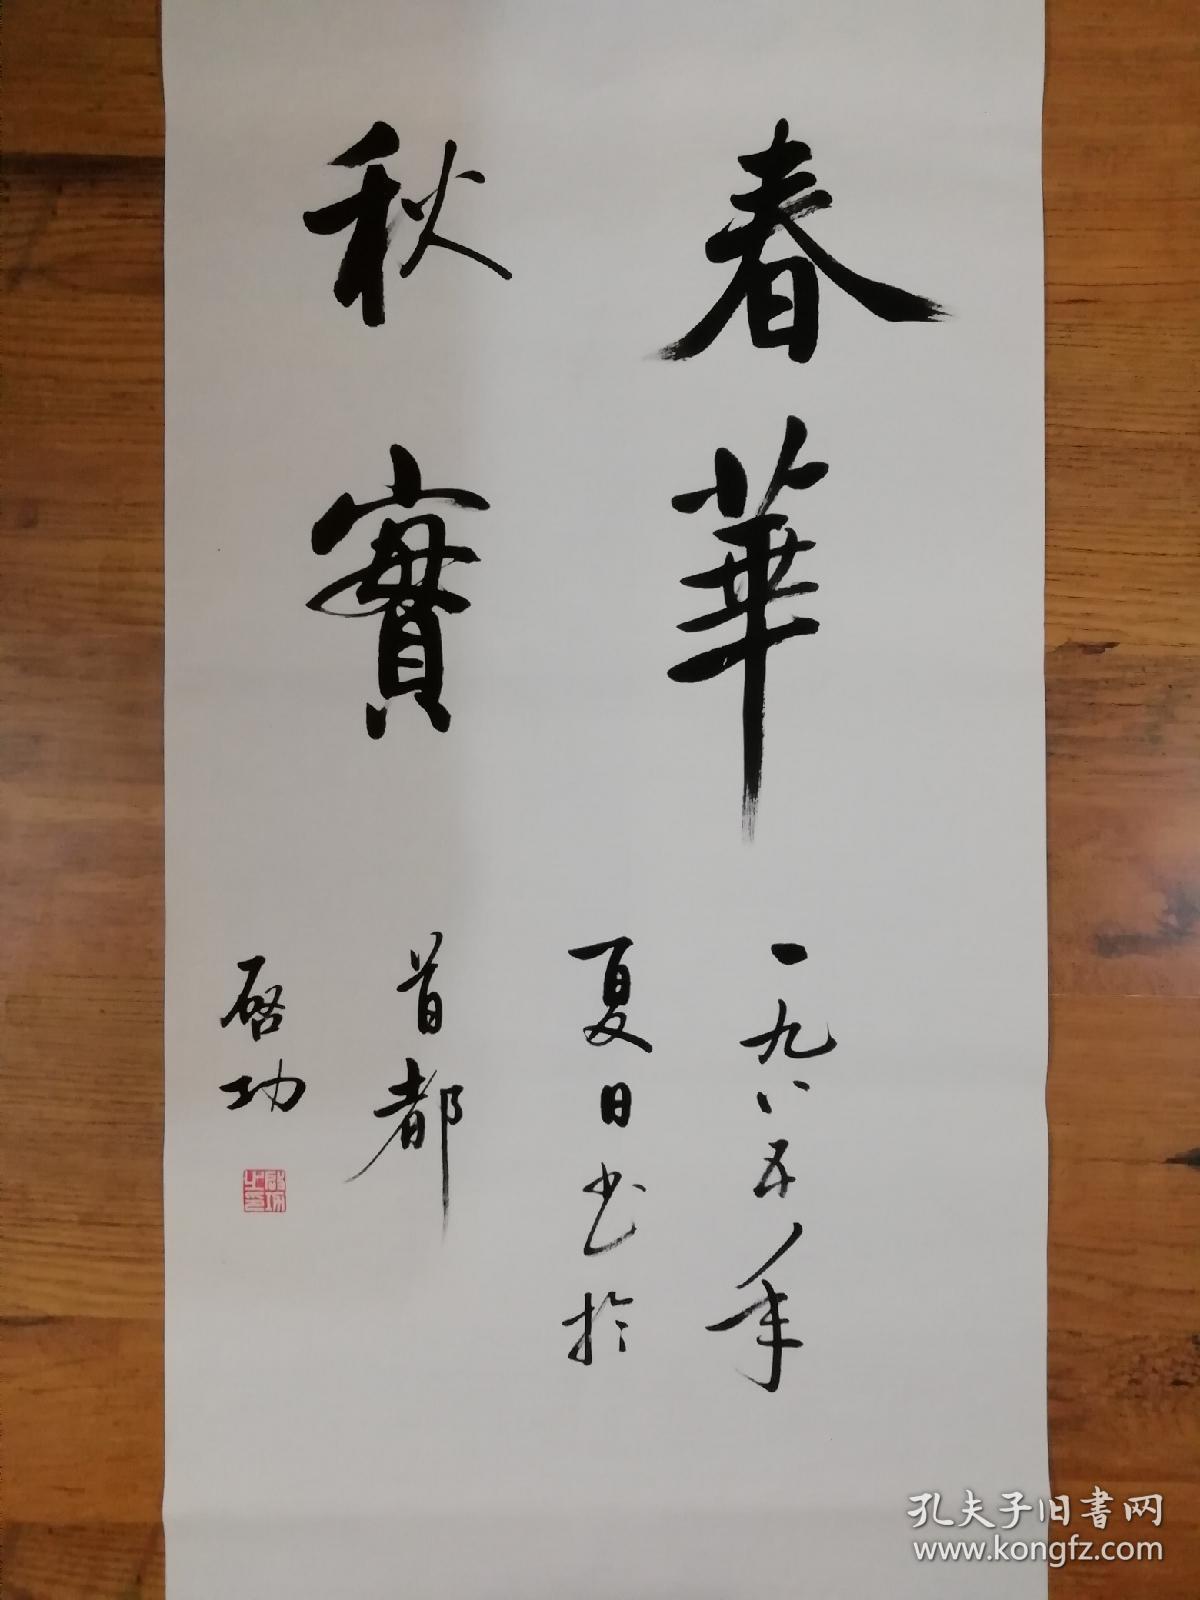 春華
秋實
一九八五年
夏日书於
首都
启功
啟功之印
孔夫子旧書网
www.kongfz.com